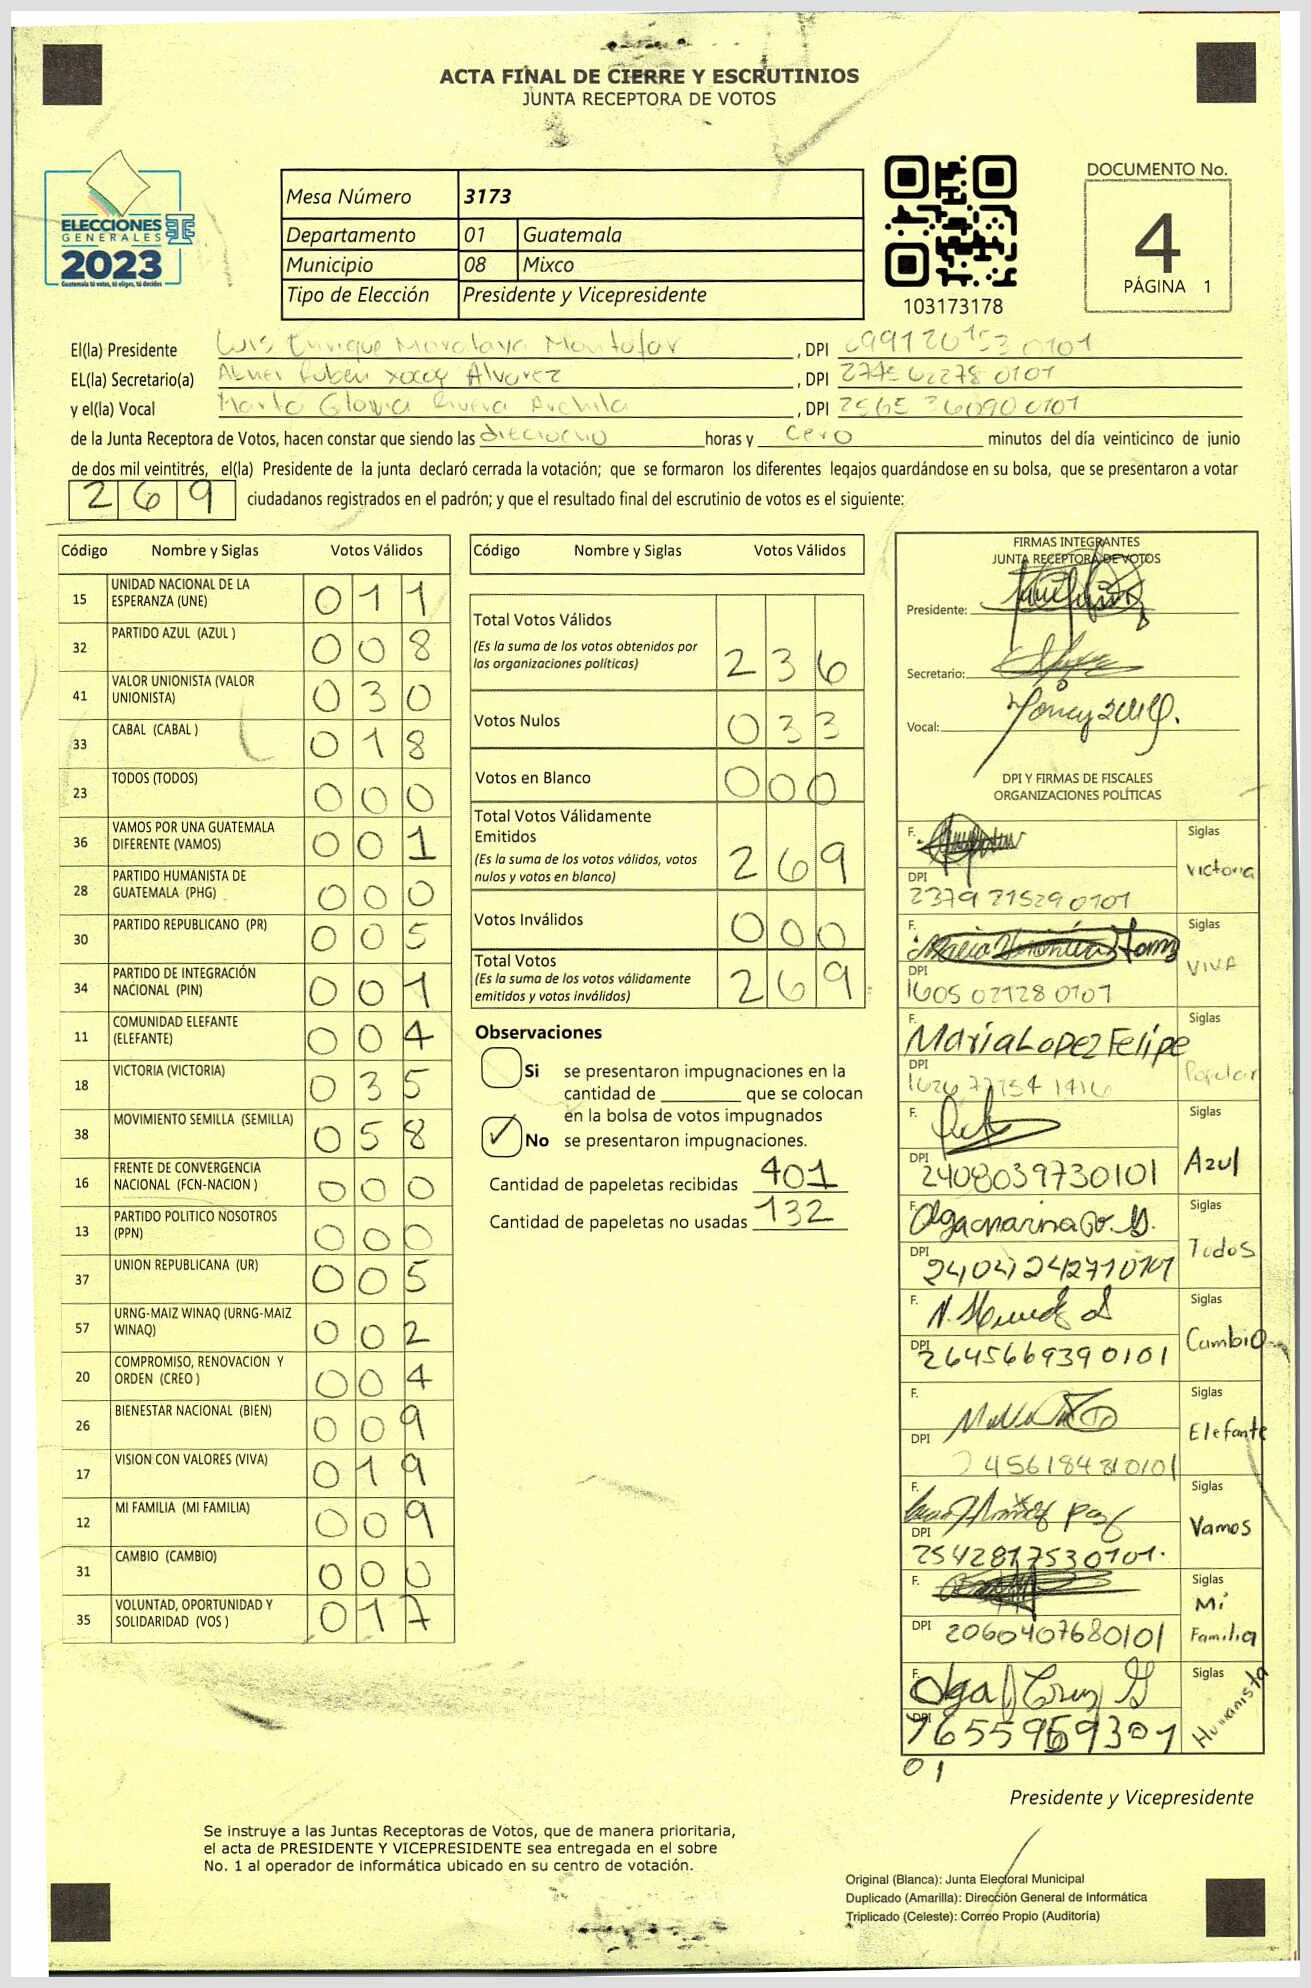 ACTA FINAL DE CIERRE Y ESCRUTINIOS
JUNTA RECEPTORA DE VOTOS
ELECCIONES
GENERALES
2023
Guatemala tú votas, tú eliges, tú decides
Mesa Número 3173
Departamento 01 Guatemala
Municipio 08 Mixco
Tipo de Elección Presidente y Vicepresidente
103173178
DOCUMENTO No.
4
PÁGINA 1
El(la) Presidente Luis Enrique Montufar, DPI
EL(la) Secretario(a) Abner Ruben Alvarez, DPI 0101
y el(la) Vocal Marta Gloria Rivera Archila, DPI 2565 36090 0101
de la Junta Receptora de Votos, hacen constar que siendo las dieciocho horas y cero minutos del día veinticinco de junio
de dos mil veintitrés, el(la) Presidente de la junta declaró cerrada la votación; que se formaron los diferentes legajos guardándose en su bolsa, que se presentaron a votar
269 ciudadanos registrados en el padrón; y que el resultado final del escrutinio de votos es el siguiente:
Código Nombre y Siglas Votos Válidos
15 UNIDAD NACIONAL DE LA ESPERANZA (UNE) 011
32 PARTIDO AZUL (AZUL ) 008
41 VALOR UNIONISTA (VALOR UNIONISTA) 030
33 CABAL (CABAL ) 018
23 TODOS (TODOS) 000
36 VAMOS POR UNA GUATEMALA DIFERENTE (VAMOS) 001
28 PARTIDO HUMANISTA DE GUATEMALA (PHG) 000
30 PARTIDO REPUBLICANO (PR) 005
34 PARTIDO DE INTEGRACIÓN NACIONAL (PIN) 001
11 COMUNIDAD ELEFANTE (ELEFANTE) 004
18 VICTORIA (VICTORIA) 035
38 MOVIMIENTO SEMILLA (SEMILLA) 058
16 FRENTE DE CONVERGENCIA NACIONAL (FCN-NACION ) 000
13 PARTIDO POLITICO NOSOTROS (PPN) 000
37 UNION REPUBLICANA (UR) 005
57 URNG-MAIZ WINAQ (URNG-MAIZ WINAQ) 002
20 COMPROMISO, RENOVACION Y ORDEN (CREO ) 004
26 BIENESTAR NACIONAL (BIEN) 009
17 VISION CON VALORES (VIVA) 019
12 MI FAMILIA (MI FAMILIA) 009
31 CAMBIO (CAMBIO) 000
35 VOLUNTAD, OPORTUNIDAD Y SOLIDARIDAD (VOS ) 017
Código Nombre y Siglas Votos Válidos
Total Votos Válidos
(Es la suma de los votos obtenidos por
las organizaciones políticas) 236
Votos Nulos 033
Votos en Blanco 000
Total Votos Válidamente
Emitidos
(Es la suma de los votos válidos, votos
nulos y votos en blanco) 269
Votos Inválidos 000
Total Votos
(Es la suma de los votos válidamente
emitidos y votos inválidos) 269
Observaciones
Si se presentaron impugnaciones en la
cantidad de ________ que se colocan
en la bolsa de votos impugnados
✓ No se presentaron impugnaciones.
Cantidad de papeletas recibidas 401
Cantidad de papeletas no usadas 132
FIRMAS INTEGRANTES
JUNTA RECEPTORA DE VOTOS
Presidente:
Secretario:
Vocal:
DPI Y FIRMAS DE FISCALES
ORGANIZACIONES POLÍTICAS
F. Siglas
DPI 2379 71529 0101 Victoria
F. Siglas
DPI 1605 02728 0101 VIVA
F. Maria Lopez Felipe Siglas
DPI Popular
F. Siglas
DPI 2408039730101 Azul
F. Siglas
DPI Todos
F. Siglas
DPI 2645669390101 Cambio
F. Siglas
DPI 2456184810101 Elefante
F. Siglas
DPI 2542817530101. Vamos
F. Siglas
DPI 2060407680101 Mi Familia
F. Olga Cruz G Siglas
DPI Humanista
01
Presidente y Vicepresidente
Se instruye a las Juntas Receptoras de Votos, que de manera prioritaria,
el acta de PRESIDENTE Y VICEPRESIDENTE sea entregada en el sobre
No. 1 al operador de informática ubicado en su centro de votación.
Original (Blanca): Junta Electoral Municipal
Duplicado (Amarilla): Dirección General de Informática
Triplicado (Celeste): Correo Propio (Auditoría)